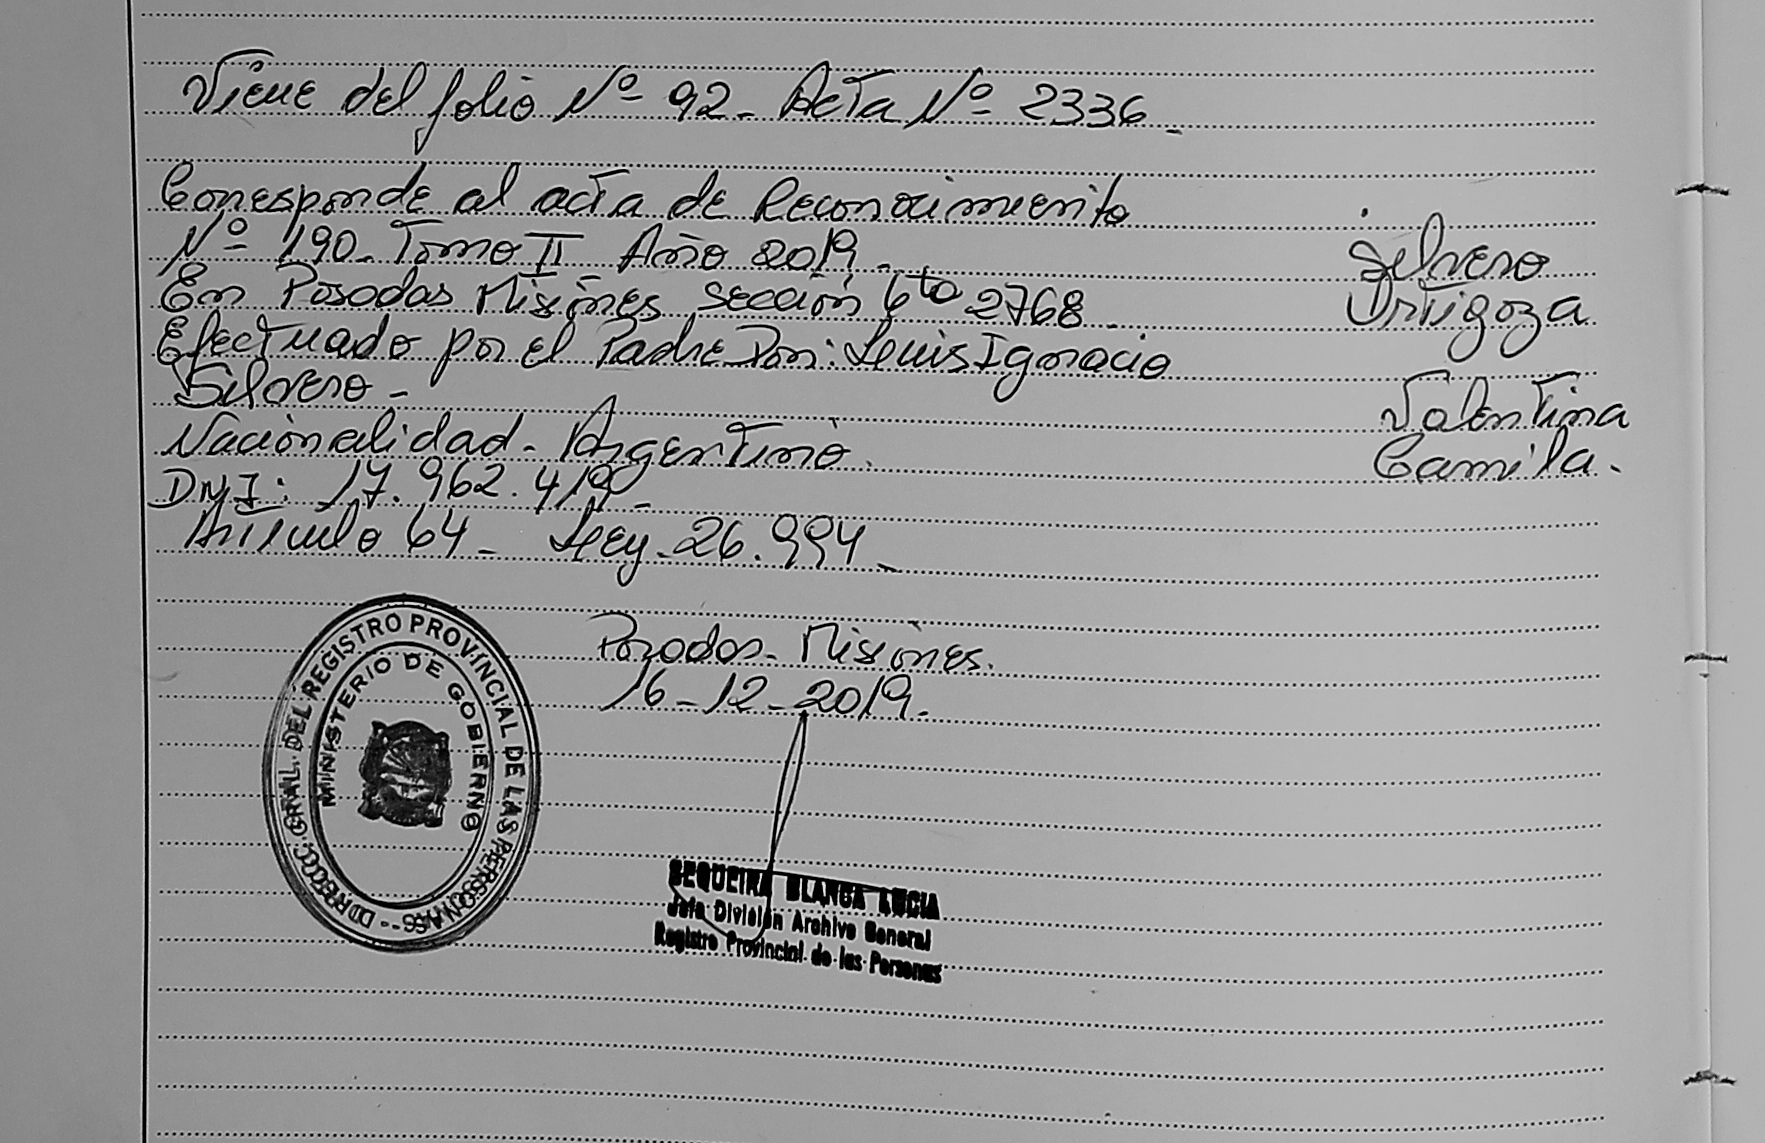 Viene del folio Nº 92 - Acta Nº 2336 -
Corresponde al acta de Reconocimiento
Nº 190 - Tomo II - Año 2019 -
En Posadas Misiones sección 6ta 2768 -
Efectuado por el Padre Don: Luis Ignacio
Silvero -
Nacionalidad - Argentino.
DNI: 17.962.419 -
Artículo 64 - Ley 26.994 -
Silvero
Ortigoza
Valentina
Camila.
Pozadas - Misiones.
16-12-2019.
DIRECC. GRAL. DEL REGISTRO PROVINCIAL DE LAS PERSONAS
MINISTERIO DE GOBIERNO
SEQUEIRA BLANCA LUCIA
Jefa División Archivo General
Registro Provincial de las Personas